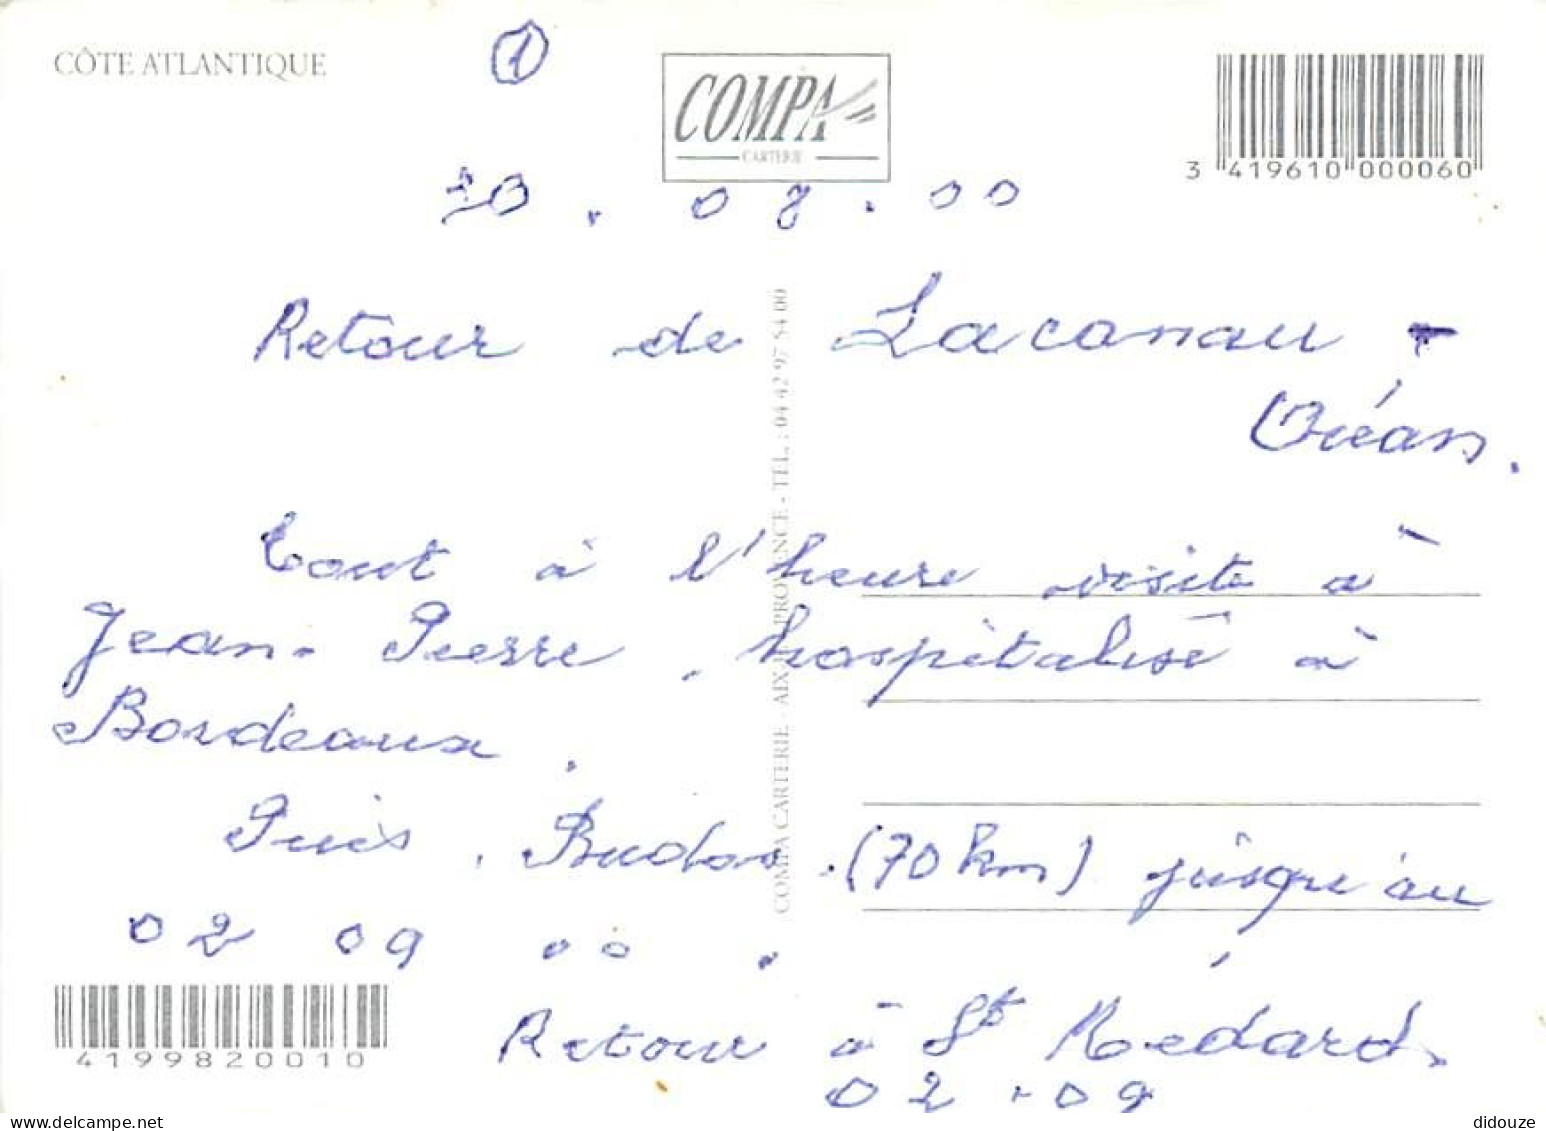 CÔTE ATLANTIQUE
1
COMPA
CARTERIE
3 419610 000060
30.08.00
Retour de Lacanau -
Océan.
Tout à l'heure visite à
Jean-Pierre, hospitalisé à
Bordeaux.
Puis, Budos (70 km) jusqu'au
02 09 00.
Retour à St Médard,
02.09
COMPA CARTERIE - AIX-EN-PROVENCE - TEL. : 04 42 97 54 00
4199820010
didouze